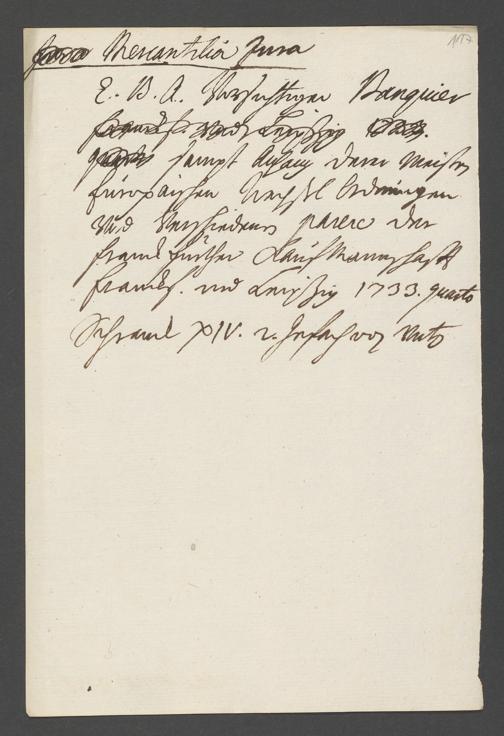 1157
Mercantilia Jura
E. B. A. Vorsichtiger Banquier
Leipzig 1733.
sampt Anhang derer Meisten
Europäischen Wechsel Ordnungen
und Verschiedene parere der
Franckfurther Kaufmannschafft
Franckf. und Leipzig 1733. quarto
Schranck XIV. 2. Gefach von Unts